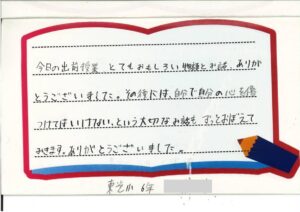 今日の出前授業 とてもおもしろい物語とお話、ありが
とうございました。その後には、自分で自分の心を傷
つけてはいけない、という大切なお話も、ずっとおぼえて
おきます。ありがとうございました。
6年